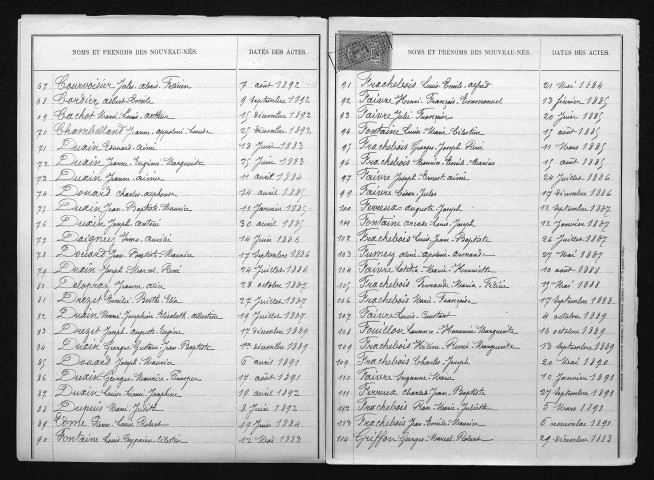 NOMS ET PRÉNOMS DES NOUVEAU-NÉS. DATES DES ACTES.
67 Courvoisier Jules 7 août 1892
68 Cordier Albert Émile 9 septembre 1892
69 Cachot Louis Arthur 15 décembre 1892
70 Chambelland Jeanne 25 décembre 1892
71 Druxin Bernard Aimé 18 juin 1883
72 Druxin Jeanne Eugénie Marguerite 25 juin 1883
73 Druxin Jeanne Aimée 11 avril 1884
74 Douard Charles Alphonse 14 avril 1885
75 Druxin Jean Baptiste Maurice 11 janvier 1885
76 Druxin Joseph 30 avril 1885
77 14 juin 1886
78 Douard Jean Baptiste Maurice 17 septembre 1886
79 Druxin Joseph Marcel René 24 juillet 1886
80 Delapraz Jeanne 28 octobre 1887
81 Drezet Berthe 27 juillet 1887
82 Druxin Marie Joséphine Élisabeth Albertine 19 juillet 1887
83 Drezet Joseph Auguste Eugène 17 décembre 1889
84 Druxin Georges Gustave Jean Baptiste décembre 1889
85 Douard Joseph Maurice 6 avril 1891
86 Druxin Georges Maurice 17 août 1891
87 Druxin Louise Joséphine 19 avril 1892
88 Dupuis Marie Judith 8 juin 1892
89 Pierre Louis Robert 29 juin 1884
90 Fontaine Louis Célestin 12 mai 1883
NOMS ET PRÉNOMS DES NOUVEAU-NÉS. DATES DES ACTES.
91 Frachebois Louis Émile Alfred 21 mai 1884
92 Faivre Henri François Emmanuel 13 février 1885
93 Faivre Julie Françoise 20 juin 1885
94 Fontaine Louise Marie Célestine 15 août 1885
95 Frachebois Georges Joseph René 11 mars 1885
96 Frachebois Maurice Émile Marius 15 août 1885
97 Faivre Joseph Ernest Aimé 24 juillet 1886
99 Faivre César Jules 17 décembre 1886
100 Ferreux Auguste Joseph 12 septembre 1887
101 Fontaine Louis Joseph 12 janvier 1887
102 Frachebois Louis Jean Baptiste 26 juillet 1887
103 Fumey Armand 27 mai 1887
104 Faivre Marie Henriette 10 août 1888
105 Frachebois Fernande Maria 17 mai 1888
106 Frachebois Marie Françoise 17 septembre 1888
107 Faivre Louis Constant 4 octobre 1889
108 Fouillon Laurence Marguerite 16 octobre 1889
109 Frachebois Hélène Marguerite 13 septembre 1889
109 Frachebois Charles Joseph 20 mai 1890
110 Faivre Suzanne Marie 10 janvier 1891
111 Ferreux Charles Jean Baptiste 27 septembre 1891
112 Frachebois Marie Juliette 5 mars 1892
113 Frachebois Jean Émile Maurice 6 novembre 1891
114 Griffon Georges Marcel Robert 29 décembre 1883